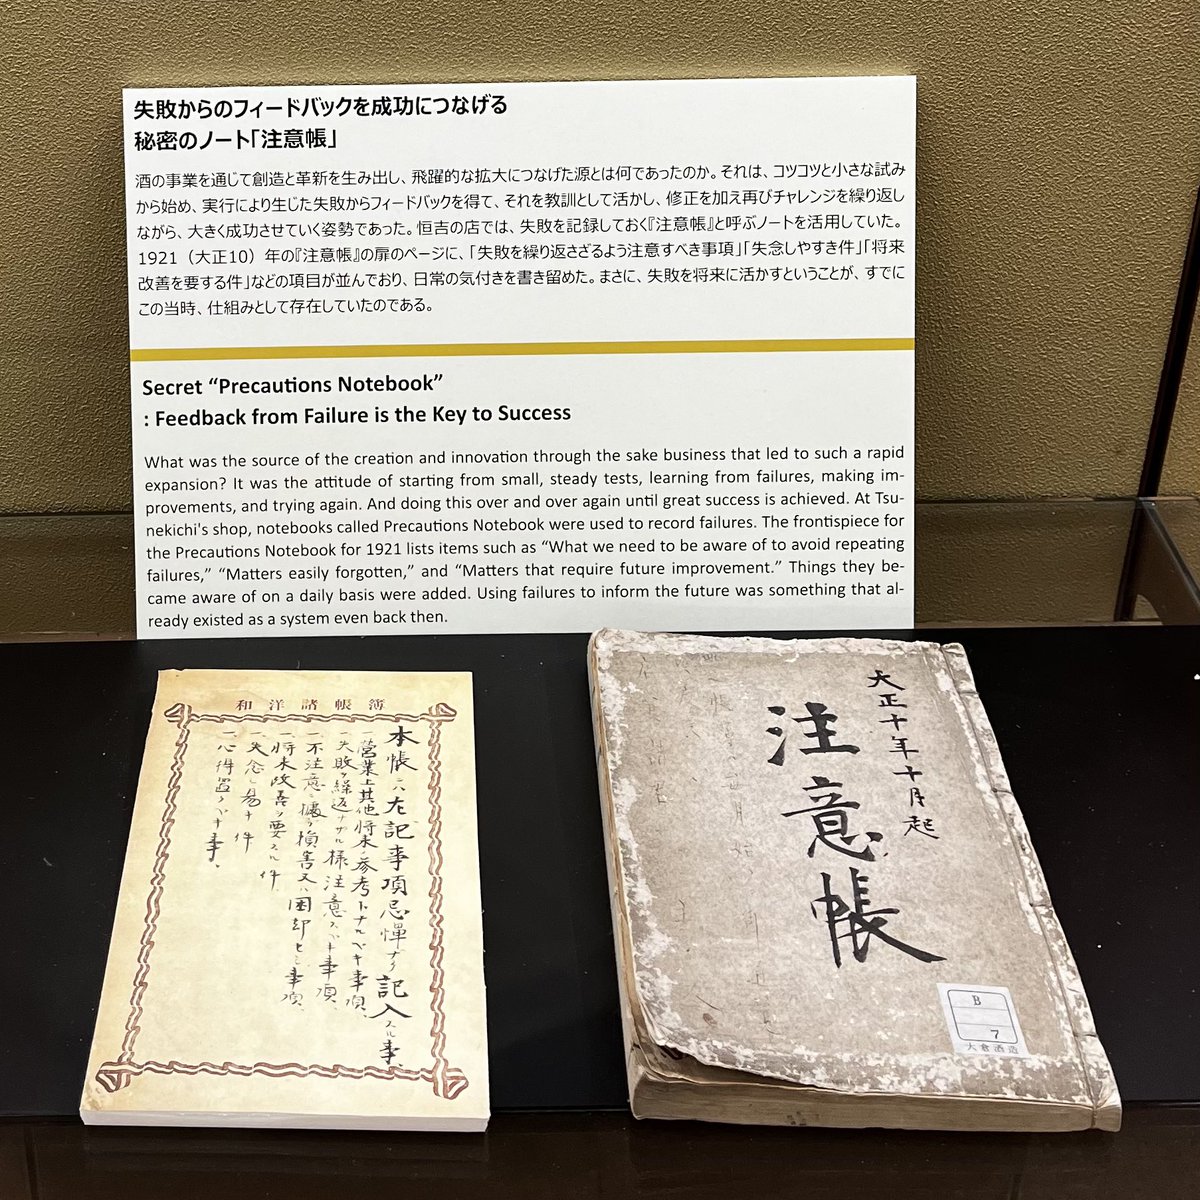 失敗からのフィードバックを成功につなげる
秘密のノート「注意帳」
酒の事業を通じて創造と革新を生み出し、飛躍的な拡大につなげた源とは何であったのか。それは、コツコツと小さな試み
から始め、実行により生じた失敗からフィードバックを得て、それを教訓として活かし、修正を加え再びチャレンジを繰り返し
ながら、大きく成功させていく姿勢であった。恒吉の店では、失敗を記録しておく『注意帳』と呼ぶノートを活用していた。
1921（大正10）年の『注意帳』の扉のページに、「失敗を繰り返さざるよう注意すべき事項」「失念しやすき件」「将来
改善を要する件」などの項目が並んでおり、日常の気付きを書き留めた。まさに、失敗を将来に活かすということが、すでに
この当時、仕組みとして存在していたのである。
Secret “Precautions Notebook”
: Feedback from Failure is the Key to Success
What was the source of the creation and innovation through the sake business that led to such a rapid
expansion? It was the attitude of starting from small, steady tests, learning from failures, making im-
provements, and trying again. And doing this over and over again until great success is achieved. At Tsu-
nekichi's shop, notebooks called Precautions Notebook were used to record failures. The frontispiece for
the Precautions Notebook for 1921 lists items such as “What we need to be aware of to avoid repeating
failures,” “Matters easily forgotten,” and “Matters that require future improvement.” Things they be-
came aware of on a daily basis were added. Using failures to inform the future was something that al-
ready existed as a system even back then.
和洋諸帳簿
本帳ニハ左記事項忌憚ナク記入スル事、
一営業上其他将来ノ参考トナルベキ事項、
一失敗ヲ繰返サザル様注意スベキ事項、
一不注意ニ據ル損害又ハ困却セシ事項、
一将来改善ヲ要スル件
一失念シ易キ件
一心得置クベキ事、
大正十年十月起
注意帳
B
7
大倉酒造